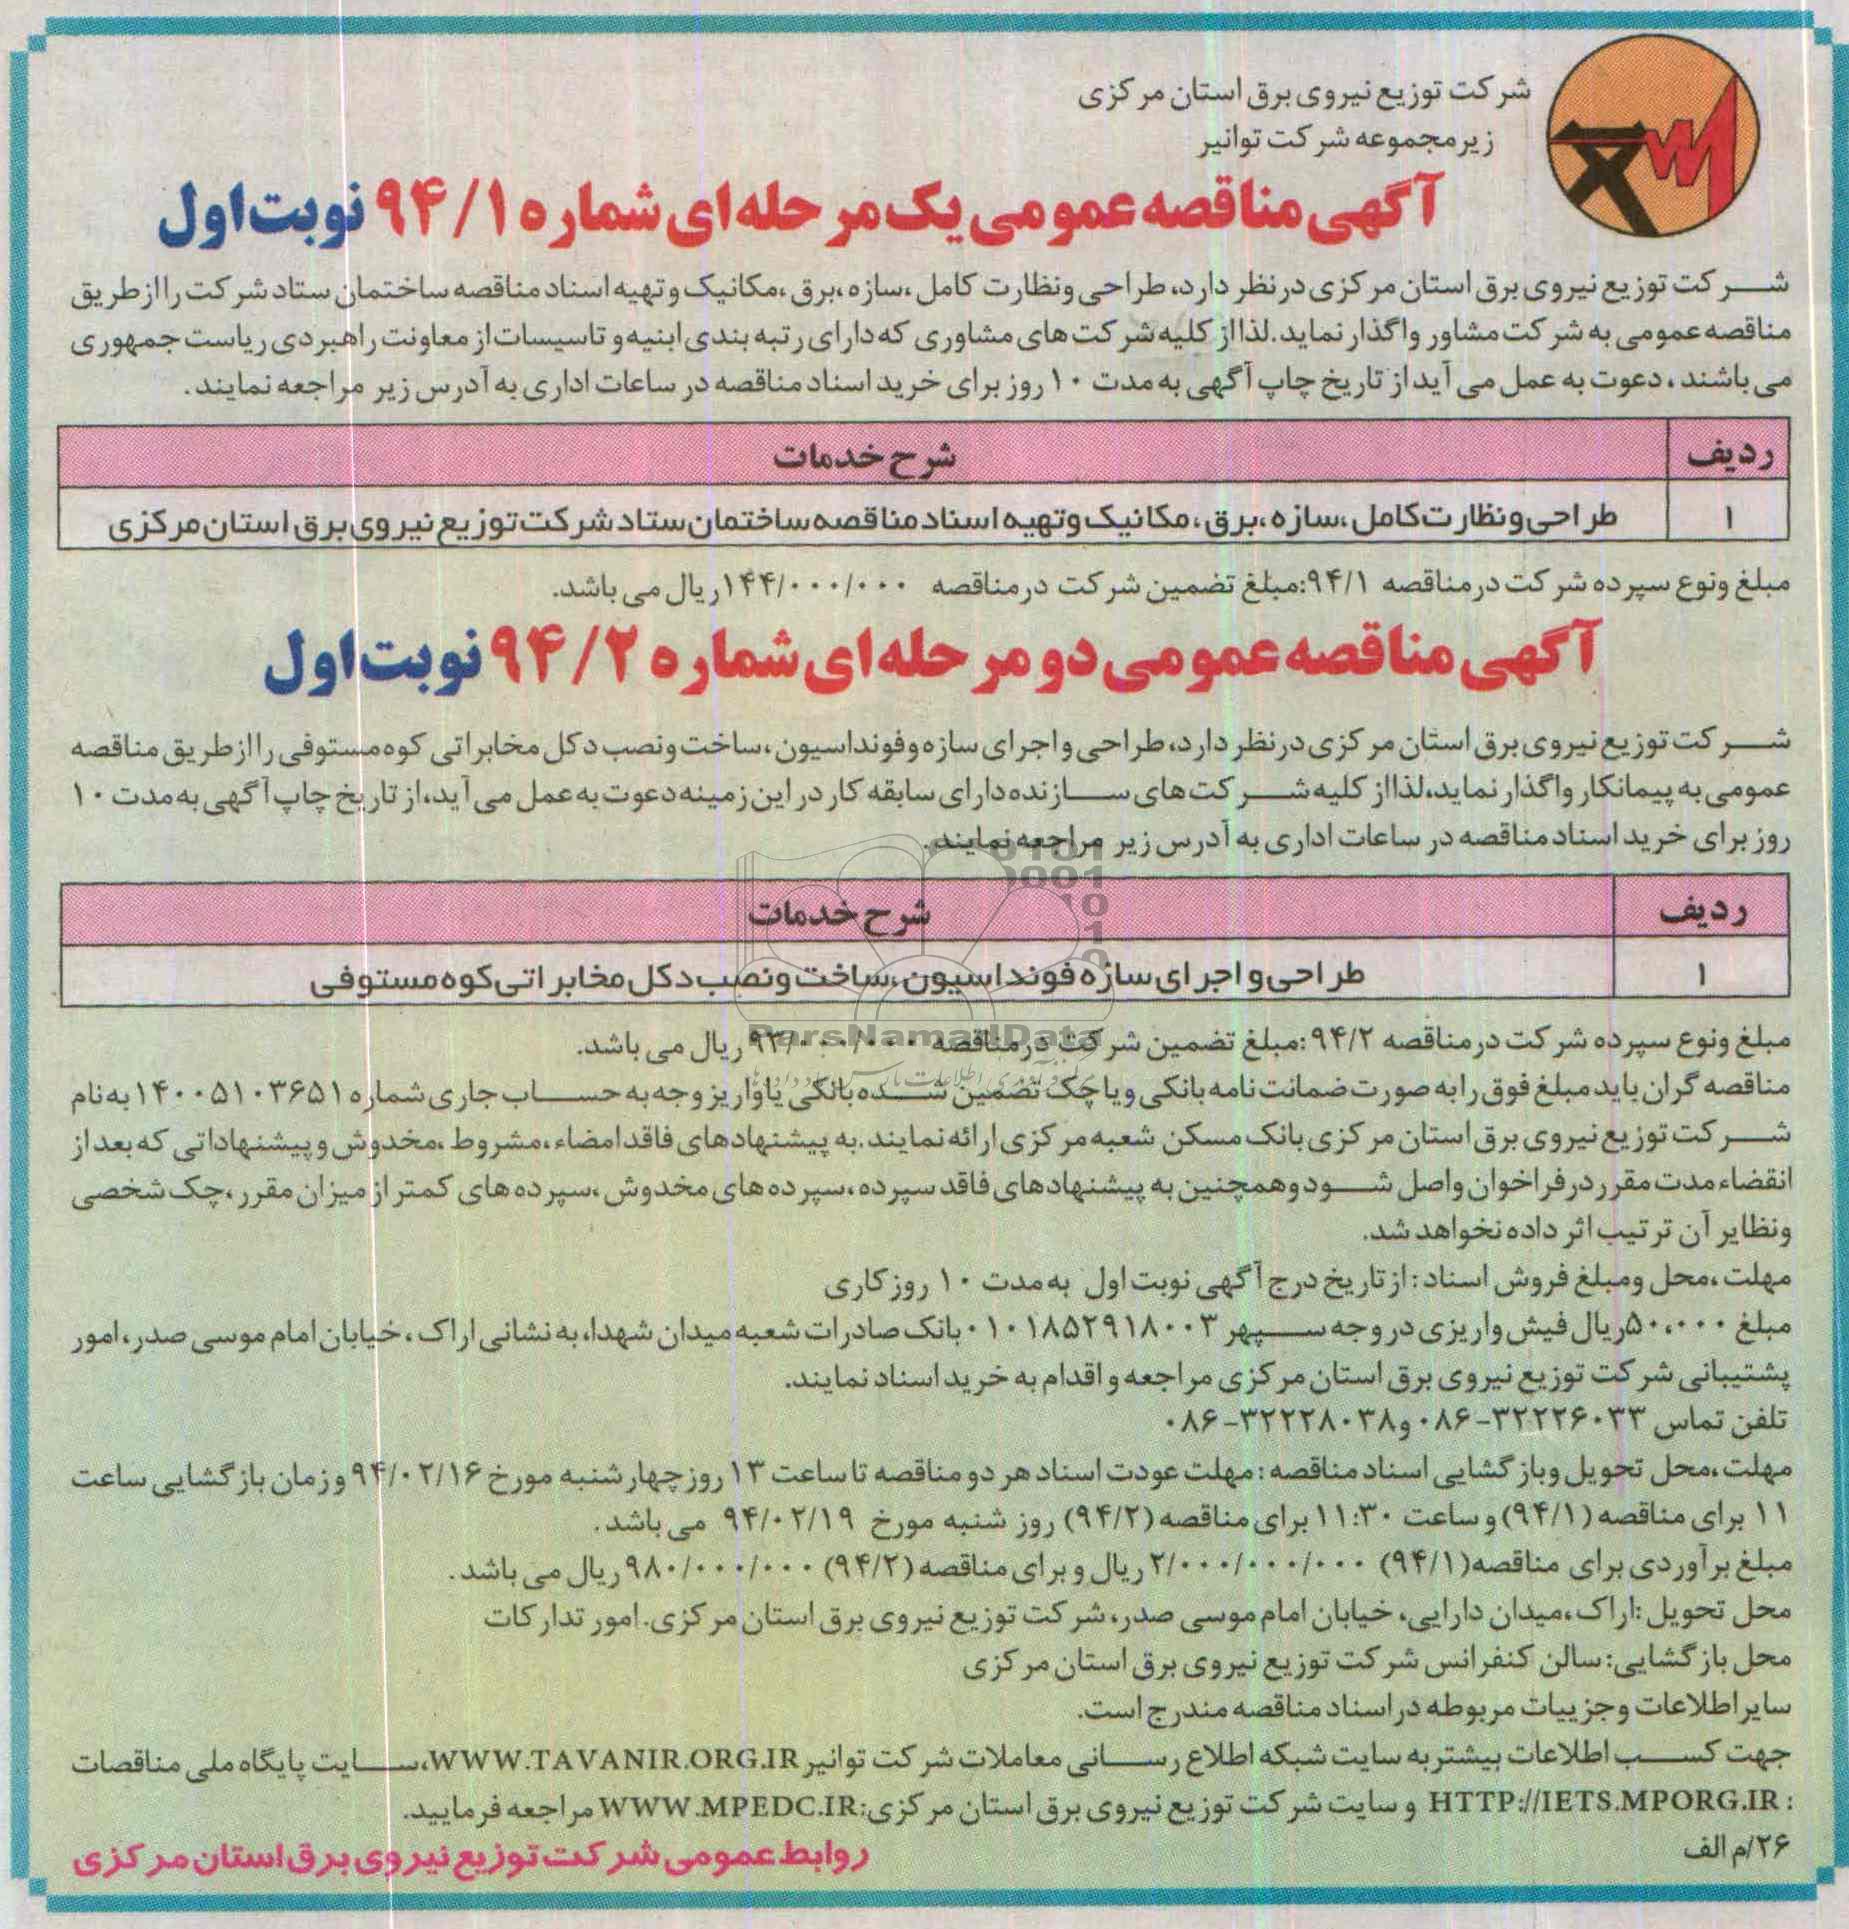 شرکت توزیع نیروی برق استان مرکزی
زیرمجموعه شرکت توانیر
آگهی مناقصه عمومی یک مرحله ای شماره ۹۴/۱ نوبت اول
شرکت توزیع نیروی برق استان مرکزی درنظر دارد، طراحی ونظارت کامل ،سازه ،برق ،مکانیک وتهیه اسناد مناقصه ساختمان ستاد شرکت را ازطریق
مناقصه عمومی به شرکت مشاور واگذار نماید.لذا از کلیه شرکت های مشاوری که دارای رتبه بندی ابنیه و تاسیسات از معاونت راهبردی ریاست جمهوری
می باشند ، دعوت به عمل می آید از تاریخ چاپ آگهی به مدت ۱۰ روز برای خرید اسناد مناقصه در ساعات اداری به آدرس زیر مراجعه نمایند.
ردیف شرح خدمات
۱ طراحی ونظارت کامل ،سازه ،برق ،مکانیک وتهیه اسناد مناقصه ساختمان ستاد شرکت توزیع نیروی برق استان مرکزی
مبلغ ونوع سپرده شرکت درمناقصه ۹۴/۱:مبلغ تضمین شرکت درمناقصه ۱۴۴/۰۰۰/۰۰۰ریال می باشد.
آگهی مناقصه عمومی دو مرحله ای شماره ۹۴/۲ نوبت اول
شرکت توزیع نیروی برق استان مرکزی درنظر دارد، طراحی و اجرای سازه وفونداسیون ،ساخت ونصب دکل مخابراتی کوه مستوفی را ازطریق مناقصه
عمومی به پیمانکار واگذار نماید،لذا از کلیه شرکت های سازنده دارای سابقه کار در این زمینه دعوت به عمل می آید،از تاریخ چاپ آگهی به مدت ۱۰
روز برای خرید اسناد مناقصه در ساعات اداری به آدرس زیر مراجعه نمایند.
ردیف شرح خدمات
۱ طراحی و اجرای سازه فونداسیون،ساخت ونصب دکل مخابراتی کوه مستوفی
ParsNamadData
مبلغ ونوع سپرده شرکت درمناقصه ۹۴/۲:مبلغ تضمین شرکت درمناقصه ۹۳/۰۰۰/۰۰۰ ریال می باشد.
مناقصه گران باید مبلغ فوق را به صورت ضمانت نامه بانکی ویا چک تضمین شده بانکی یا واریز وجه به حساب جاری شماره ۱۴۰۰۵۱۰۳۶۵۱ به نام
شرکت توزیع نیروی برق استان مرکزی بانک مسکن شعبه مرکزی ارائه نمایند.به پیشنهادهای فاقد امضاء ،مشروط ،مخدوش و پیشنهاداتی که بعد از
انقضاء مدت مقرر درفراخوان واصل شود وهمچنین به پیشنهادهای فاقد سپرده ،سپرده های مخدوش ،سپرده های کمتر از میزان مقرر ،چک شخصی
ونظایر آن ترتیب اثر داده نخواهد شد.
مهلت ،محل ومبلغ فروش اسناد : ازتاریخ درج آگهی نوبت اول به مدت ۱۰ روز کاری
مبلغ ۵۰،۰۰۰ریال فیش واریزی در وجه سپهر ۰۱۰۱۸۵۲۹۱۸۰۰۳ بانک صادرات شعبه میدان شهدا، به نشانی اراک ، خیابان امام موسی صدر، امور
پشتیبانی شرکت توزیع نیروی برق استان مرکزی مراجعه و اقدام به خرید اسناد نمایند.
تلفن تماس ۳۲۲۲۶۰۳۳-۰۸۶ و۳۲۲۲۸۰۳۸-۰۸۶
مهلت ،محل تحویل وبازگشایی اسناد مناقصه : مهلت عودت اسناد هر دو مناقصه تا ساعت ۱۳ روز چهارشنبه مورخ ۹۴/۰۲/۱۶ و زمان بازگشایی ساعت
۱۱ برای مناقصه (۹۴/۱) و ساعت ۱۱:۳۰ برای مناقصه (۹۴/۲) روز شنبه مورخ ۹۴/۰۲/۱۹ می باشد .
مبلغ برآوردی برای مناقصه(۹۴/۱) ۲/۰۰۰/۰۰۰/۰۰۰ ریال و برای مناقصه (۹۴/۲) ۹۸۰/۰۰۰/۰۰۰ریال می باشد .
محل تحویل :اراک ،میدان دارایی، خیابان امام موسی صدر، شرکت توزیع نیروی برق استان مرکزی. امور تدارکات
محل بازگشایی: سالن کنفرانس شرکت توزیع نیروی برق استان مرکزی
سایر اطلاعات وجزییات مربوطه در اسناد مناقصه مندرج است.
جهت کسب اطلاعات بیشتر به سایت شبکه اطلاع رسانی معاملات شرکت توانیر WWW.TAVANIR.ORG.IR،سایت پایگاه ملی مناقصات
: HTTP://IETS.MPORG.IR و سایت شرکت توزیع نیروی برق استان مرکزی:WWW.MPEDC.IR مراجعه فرمایید.
۲۶/م الف
روابط عمومی شرکت توزیع نیروی برق استان مرکزی